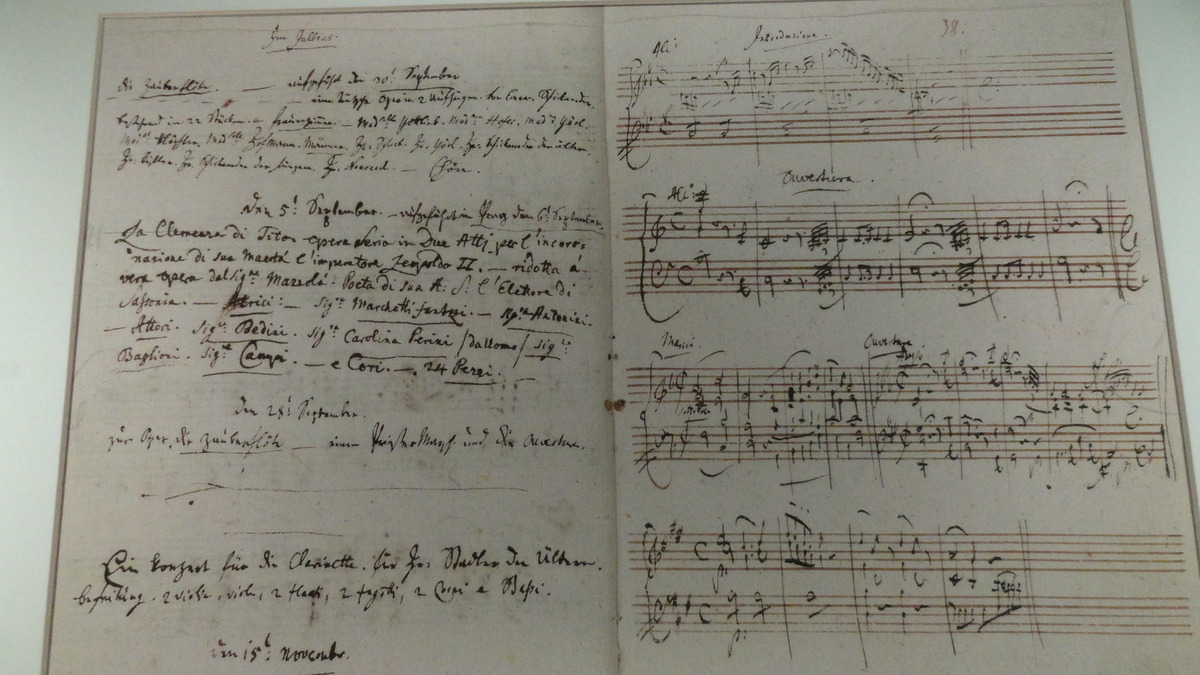 Im Jullius.
die Zauberflöte. — aufgeführt den 30t September
eine teutsche Oper in 2 Aufzügen. von Eman. Schikaneder.
bestehend in 22 Stücken. — frauenzimmer. — Mad.selle Gottlieb. Mad.me Hofer. Mad.me Görl.
Mad.me Klöpfler. Mad.selle Hofmann. Männer. Hr. Schack. Hr. Görl. Hr. Schikaneder der ältere.
Hr. Kistler. Hr. Schikaneder der jüngere. Hr. Nouseul. — Chöre.
den 5t September. — aufgeführt in Prag den 6t September.
La Clemenza di Tito. opera Seria in Due Atti. per l'incoro-
nazione di sua Maestà l'imperatore Leopoldo II. — ridotta à
vera opera dal Sigre Mazzolà. Poeta di sua A: S. l'Elettore di
Sassonia. — Attrici: — Sigra Marchetti fantozi. — Sigra Antonini.
— Attori. Sigre Bedini. Sigra Carolina Perini /da Uomo/ Sigre
Baglioni. Sigre Campi. — e Cori. — 24 Pezzi.
den 28t September.
zur Oper. die Zauberflöte — einen Priester Marsch und die Ouverture.
Ein konzert für die Clarinette. für Hr. Stadler den Ältern.
begleitung. 2 violin, viole, 2 flauti, 2 fagotti, 2 Corni e Bassi.
den 15t Novembr.
38.
Introduzione.
All:
Ouvertura.
All:
Marcia.
Ouverture.